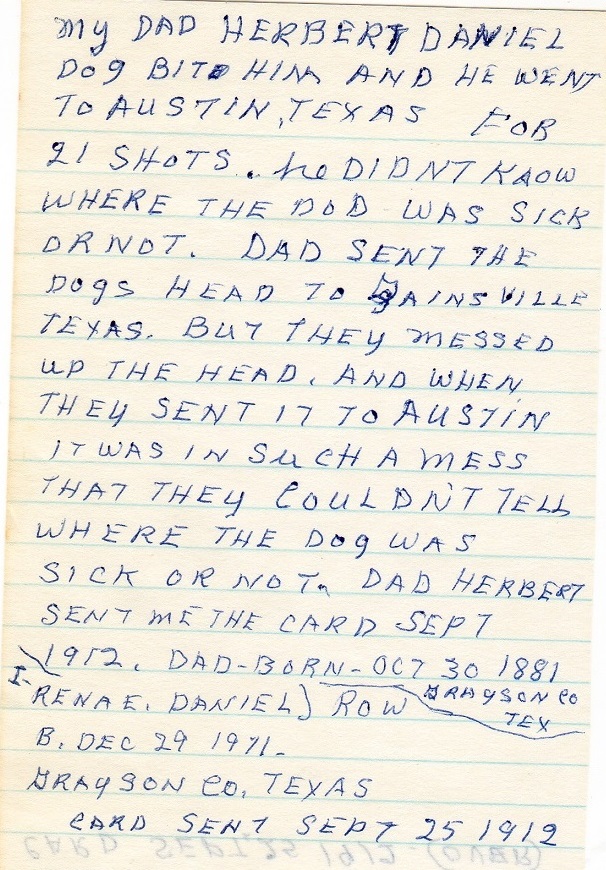 My DAD HERBERT DANIEL
DOg BITE HIM AND HE WENT
TO AUSTIN, TEXAS FOR
21 SHOTS. he DIDNT KNOW
WHERE THE DOD WAS SICK
OR NOT. DAD SENT THE
DOgS HEAD TO gAINSVILLE
TEXAS. BUT THEY MESSED
UP THE HEAD. AND WHEN
THEY SENT IT TO AUSTIN
IT WAS IN SUCH A MESS
THAT THEY COULDN'T TELL
WHERE THE DOg WAS
SICK OR NOT. DAD HERBERT
SENT ME THE CARD SEPT
1912. DAD-BORN-OCT 30 1881
GRAYSON CO
TEX
I-RENAE. DANIEL) ROW
B. DEC 29 1971.
GRAYSON CO, TEXAS
CARD SENT SEPT 25 1912
CARD SEPT. 25 1912 (OVER)